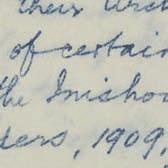 their
of certain
the Inisho
ders, 1909,